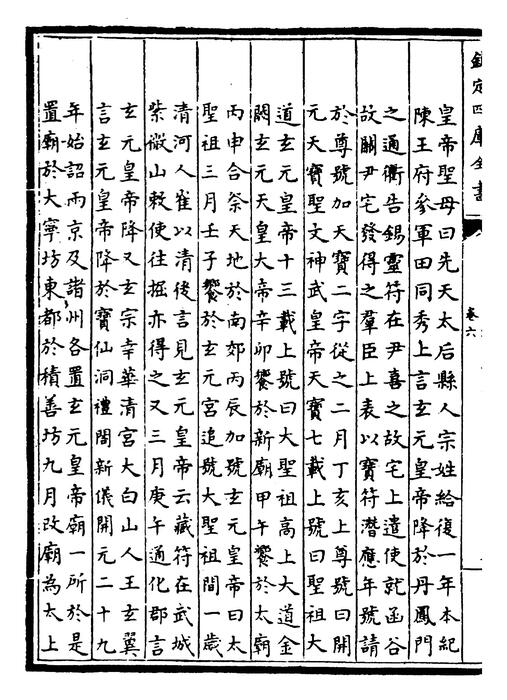 欽定四庫全書
卷六
皇帝聖母曰先天太后縣人宗姓給復一年本紀
陳王府參軍田同秀上言玄元皇帝降於丹鳳門
之通衢告錫靈符在尹喜之故宅上遣使就函谷
故關尹宅發得之羣臣上表以寶符潛應年號請
於尊號加天寶二字從之二月丁亥上尊號曰開
元天寶聖文神武皇帝天寶七載上號曰聖祖大
道玄元皇帝十三載上號曰大聖祖高上大道金
闕玄元天皇大帝辛卯饗於新廟甲午饗於太廟
丙申合祭天地於南郊丙辰加號玄元皇帝曰太
聖祖三月壬子饗於玄元宮追號大聖祖間一歲
清河人崔以清後言見玄元皇帝云藏符在武城
紫微山敕使往掘亦得之又三月庚午通化郡言
玄元皇帝降又玄宗幸華清宮大白山人王玄翼
言玄元皇帝降於寶仙洞禮閣新儀開元二十九
年始詔兩京及諸州各置玄元皇帝廟一所於是
置廟於大寧坊東都於積善坊九月改廟為太上